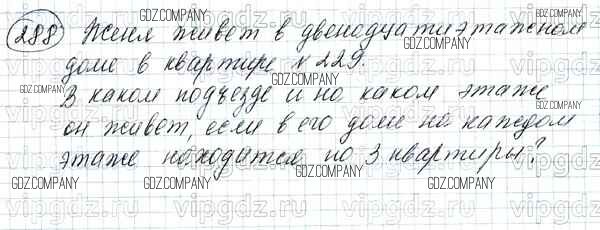 288 Женя живет в двенадцатиэтажном
доме в квартире №229.
В каком подъезде и на каком этаже
он живет, если в его доме на каждом
этаже находится по 3 квартиры?
GDZ.COMPANY
vipgdz.ru